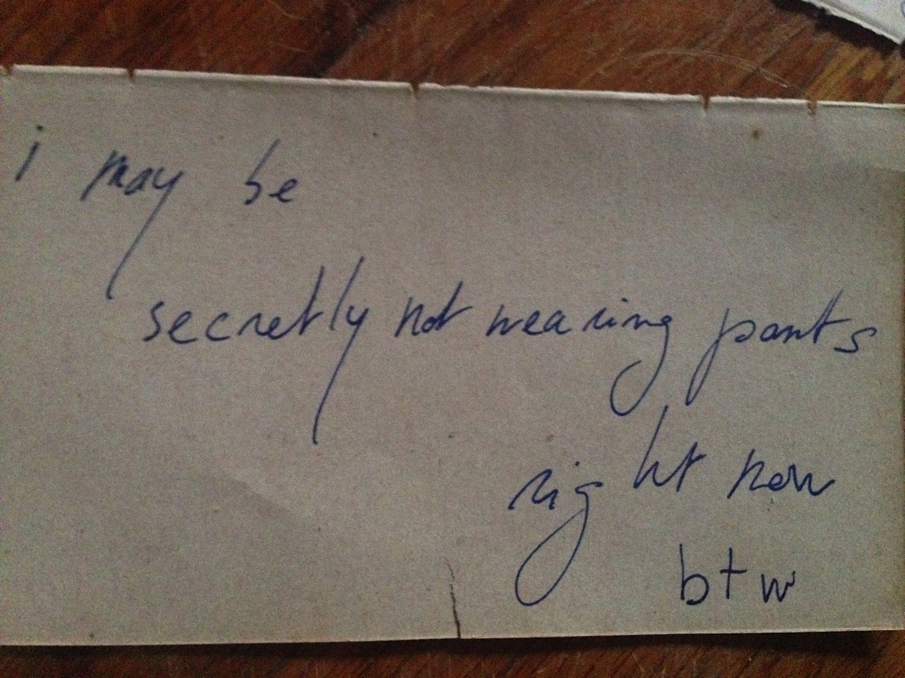 i may be
secretly not wearing pants
right now
btw